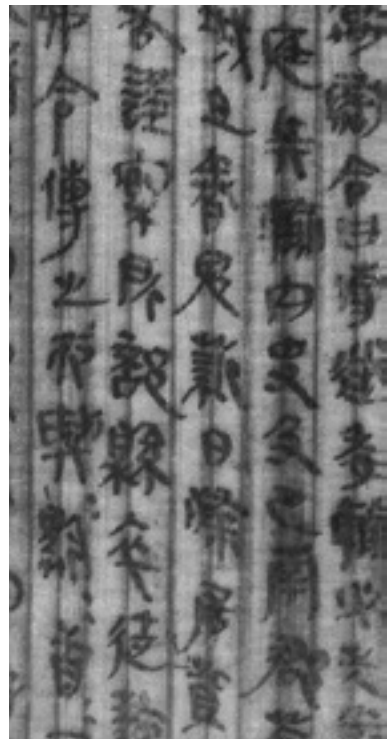 尉令曰傳送委輸必先悉
庭兵輸内史及巴南郡蒼
城旦舂鬼薪白粲居貲
各謹案所部縣卒徒隸
弗令傳之而興黔首